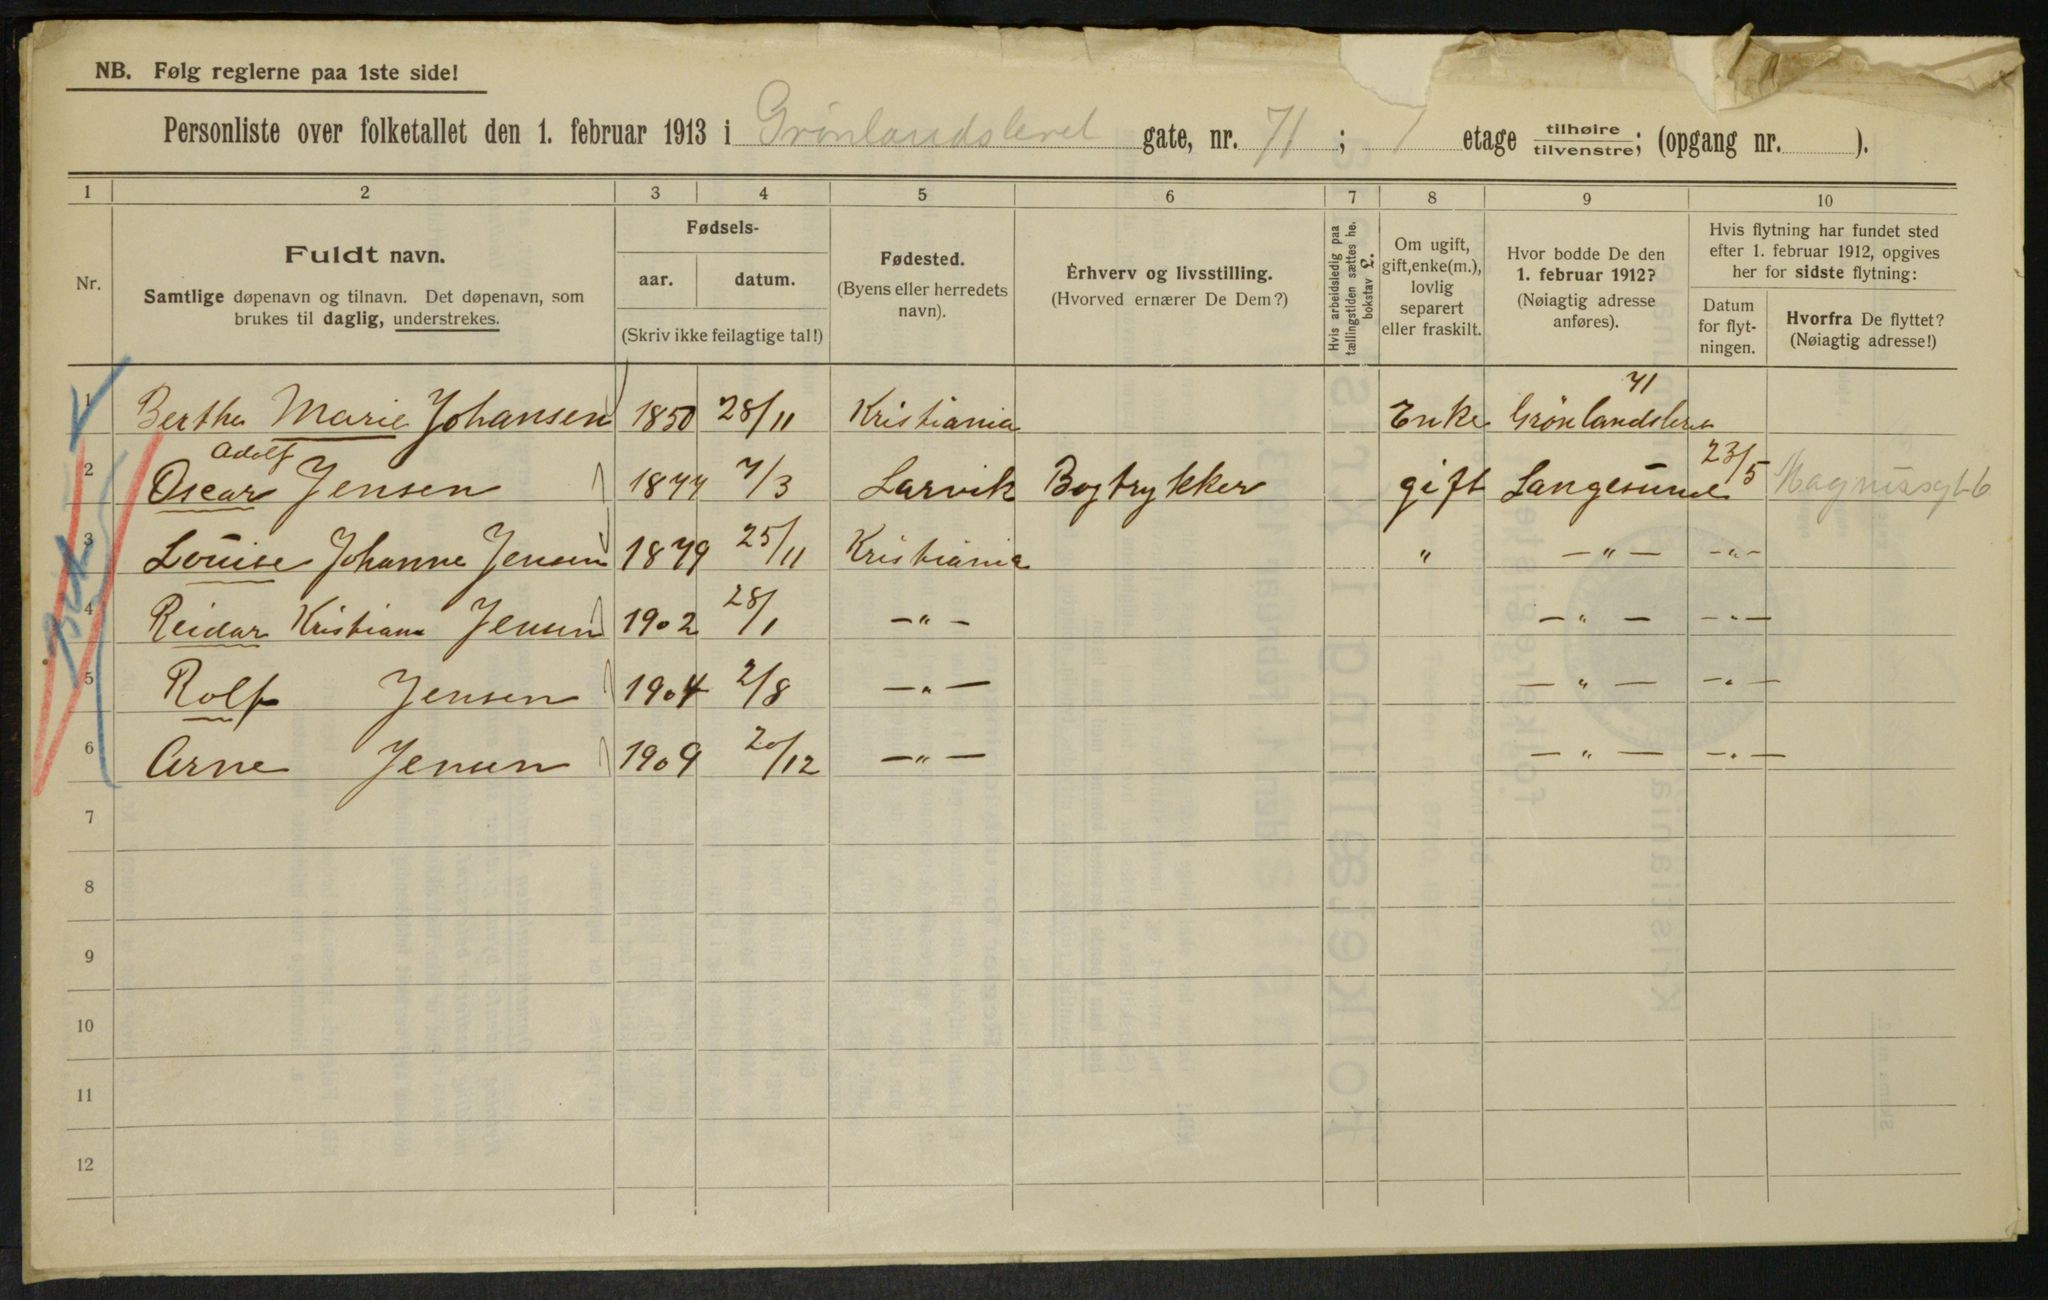 NB. Følg reglerne paa 1ste side!
Personliste over folketallet den 1. februar 1913 i Grønlandsleret gate, nr. 71 ; 1 etage tilhøire tilvenstre; (opgang nr. ).
1 2 3 4 5 6 7 8 9 10
Nr.
Fuldt navn.
Samtlige døpenavn og tilnavn. Det døpenavn, som
brukes til daglig, understrekes.
Fødsels-
aar. datum.
(Skriv ikke feilagtige tal!)
Fødested.
(Byens eller herredets
navn).
Erhverv og livsstilling.
(Hvorved ernærer De Dem?)
Hvis arbeidsledig paa
tællingstiden sættes he.
bokstav L.
Om ugift,
gift, enke(m.),
lovlig
separert
eller fraskilt.
Hvor bodde De den
1. februar 1912?
(Nøiagtig adresse
anføres).
Hvis flytning har fundet sted
efter 1. februar 1912, opgives
her for sidste flytning:
Datum
for flyt-
ningen.
Hvorfra De flyttet?
(Nøiagtig adresse!)
71
1 Bertha Marie Johansen 1850 28/11 Kristiania Enke Grønlandsleret
Adolf
2 Oscar Jensen 1877 7/3 Larvik Bogtrykker gift Langesund 23/5 Magnusgt 6
3 Louise Johanne Jensen 1879 25/11 Kristiania " — " — — " —
4 Reidar Kristian Jensen 1902 28/1 — " — — " — — " —
5 Rolf Jensen 1904 2/8 — " — — " — — " —
6 Arne Jensen 1909 20/12 — " — — " — — " —
7
8
9
10
11
12